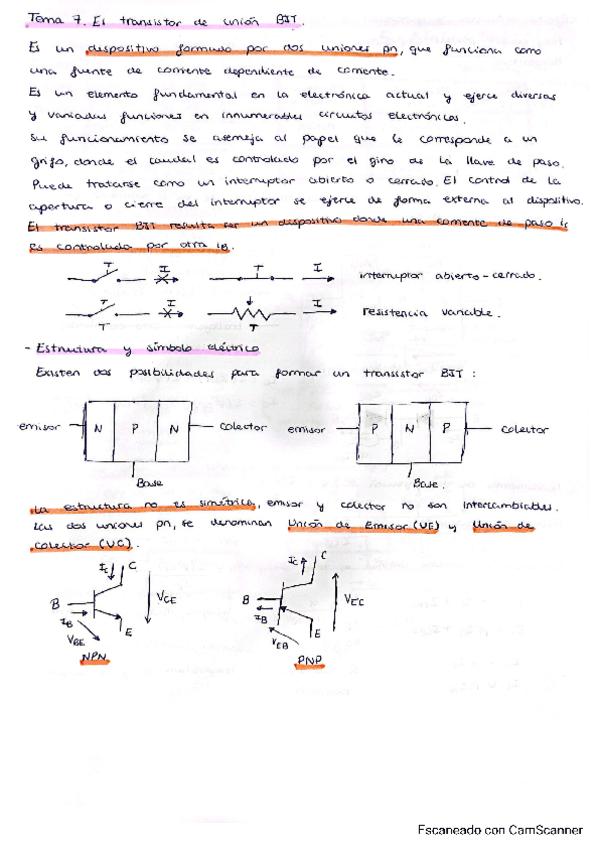 Tema 7. El transistor de unión BJT.
Es un dispositivo formado por dos uniones pn, que funciona como
una fuente de corriente dependiente de corriente.
Es un elemento fundamental en la electrónica actual y ejerce diversas
y variadas funciones en innumerables circuitos electrónicos.
Su funcionamiento se asemeja al papel que le corresponde a un
grifo, donde el caudal es controlado por el giro de la llave de paso.
Puede tratarse como un interruptor abierto o cerrado. El control de la
apertura o cierre del interruptor se ejerce de forma externa al dispositivo.
El transistor BJT resulta ser un dispositivo donde una corriente de paso ic
es controlada por otra iB.
T I T I interruptor abierto-cerrado.
T I I resistencia variable.
T T
- Estructura y símbolo eléctrico
Existen dos posibilidades para formar un transistor BJT :
emisor N P N colector emisor P N P colector
Base Base.
La estructura no es simétrica, emisor y colector no son intercambiables.
Las dos uniones pn, se denominan Unión de Emisor (UE) y Unión de
Colector (UC).
Ic C Ic C
B VCE B VEC
IB E IB E
VBE VEB
NPN PNP
Escaneado con CamScanner